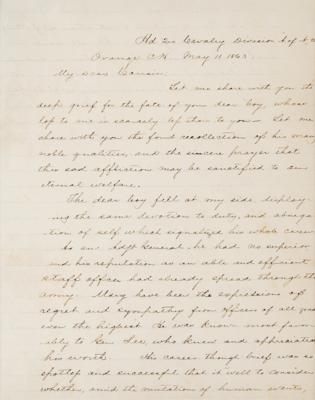 Hd Qrs Cavalry Division A of N. Va
Orange C.H. May 11 1863.
My Dear Cousin.
Let me share with you the
deep grief for the fate of your dear boy, whose
loss to me is scarcely less than to you. Let me
share with you the fond recollection of his many
noble qualities, and the sincere prayer that
this sad affliction may be sanctified to our
eternal welfare.
The dear boy fell at my side display-
ing the same devotion to duty, and abnega-
tion of self which signalized his whole career.
As an Adjt General he had no superior
and his reputation as an able and efficient
staff officer had already spread through the
army. Many have been the expressions of
regret and sympathy from officers of all grades
even the highest. He was known most favor-
ably to Gen Lee, who knew and appreciated
his worth. His career though brief was so
spotless and successful that it well to consider
whether, amid the mutations of human events,